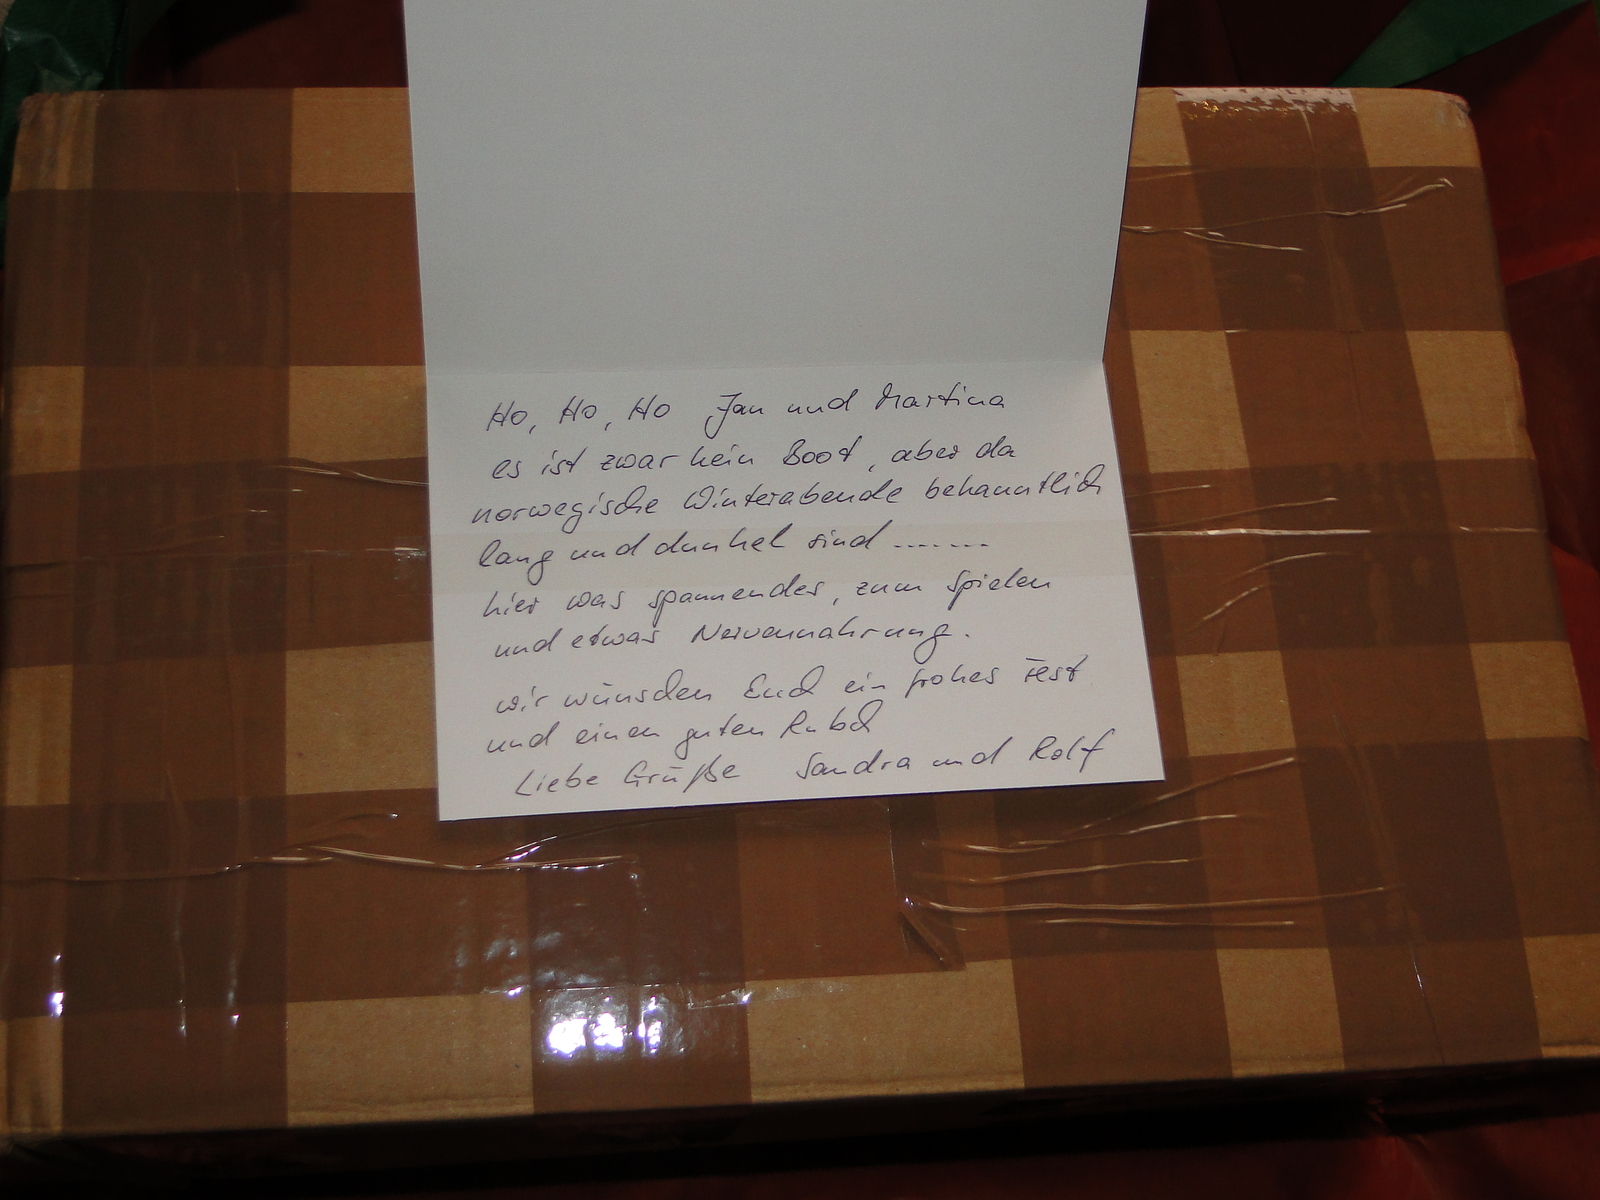 Ho, Ho, Ho Jan und Martina
es ist zwar kein Boot, aber da
norwegische Winterabende bekanntlich
lang und dunkel sind .......
hier was spannendes, zum Spielen
und etwas Nervennahrung.
wir wünschen Euch ein frohes Fest
und einen guten Rutsch
Liebe Grüße Sandra und Rolf